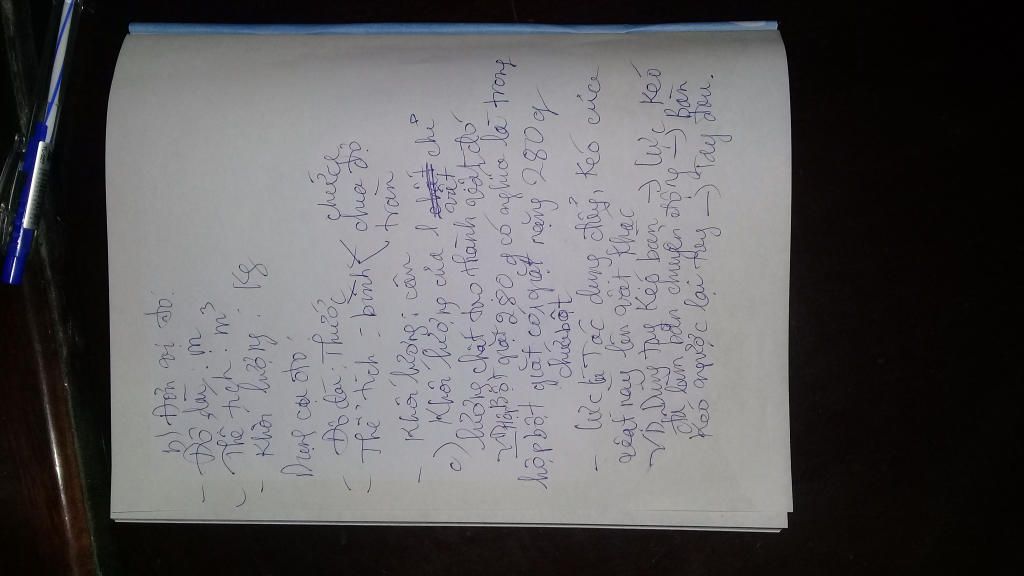 b) Đơn vị đo.
- Độ dài: m
- Thể tích: m³
- Khối lượng: Kg
Dụng cụ đo
- Độ dài: Thước
- Thể tích - bình < chia độ
tràn
- Khối lượng: cân
c) Khối lượng của 1 vật chỉ
lượng chất tạo thành vật đó
VD Hộp bột giặt 280g có nghĩa là trong
hộp bột giặt có giặt nặng 280g
chứa bột
- Lực là Tác dụng đẩy, kéo của
vật này lên vật khác
VD. Dùng tay kéo bàn → lực kéo
đã làm bàn chuyển động → bàn
kéo ngược lại tay → Tay đau.